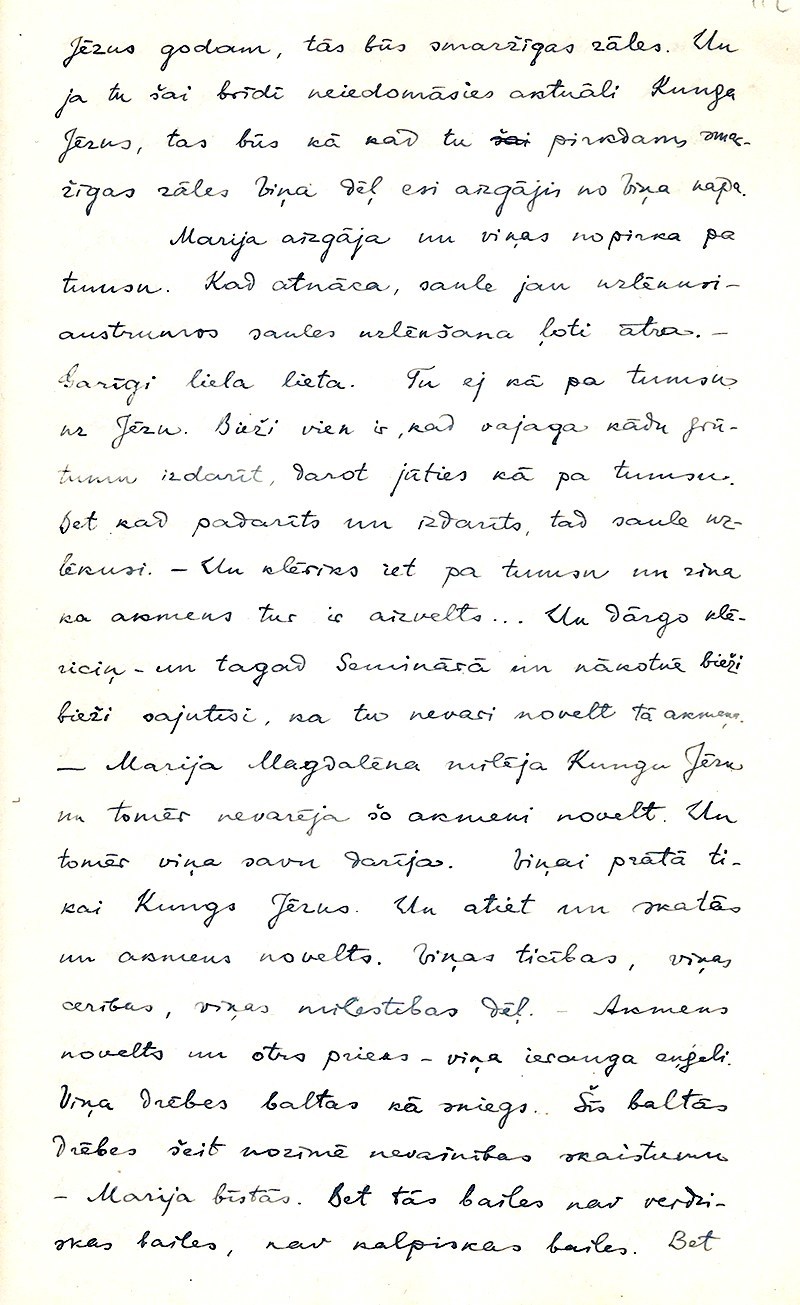 Jēzus godam, tās būs smaržīgas zāles. Un
ja tu šai brīdī neiedomāsies aktuāli Kunga
Jēzus, tas būs kā kad tu šai pirkdams smar-
žīgas zāles Viņa dēļ esi aizgājis no Viņa kapa.
Marija aizgāja un viņas nopirka pa
tumsu. Kad atnāca, saule jau uzlēkusi -
austrumos saules uzlēkšana ļoti ātra. -
Garīgi liela lieta. Tu ej kā pa tumsu
uz Jēzu. Bieži vien ir, kad vajaga kādu grū-
tumu izdarīt, darot jūties kā pa tumsu.
Bet kad padarīts un izdarīts, tad saule uz-
lēkusi. - Un klēriks iet pa tumsu un zina
ka akmens tur ir aizvelts... Un dārgo klē-
riciņ - un tagad Seminārā un nākotnē bieži
bieži sajutīsi, ka tu nevari novelt tā akmeņa.
- Marija Magdalēna mīlēja Kungu Jēzu
un tomēr nevarēja šo akmeni novelt. Un
tomēr viņa savu darīja. Viņai prātā ti-
kai Kungs Jēzus. Un atiet un skatās
un akmens novelts. Viņas ticības, viņas
cerības, viņas mīlestības dēļ. - Akmens
novelts un otrs prieks - viņa ierauga eņģeli.
Viņa drēbes baltas kā sniegs.. Šīs baltās
drēbes šeit nozīmē nevainības skaistumu
- Marija bīstās. Bet tās bailes nav verdzi-
skas bailes, nav kalpiskas bailes. Bet